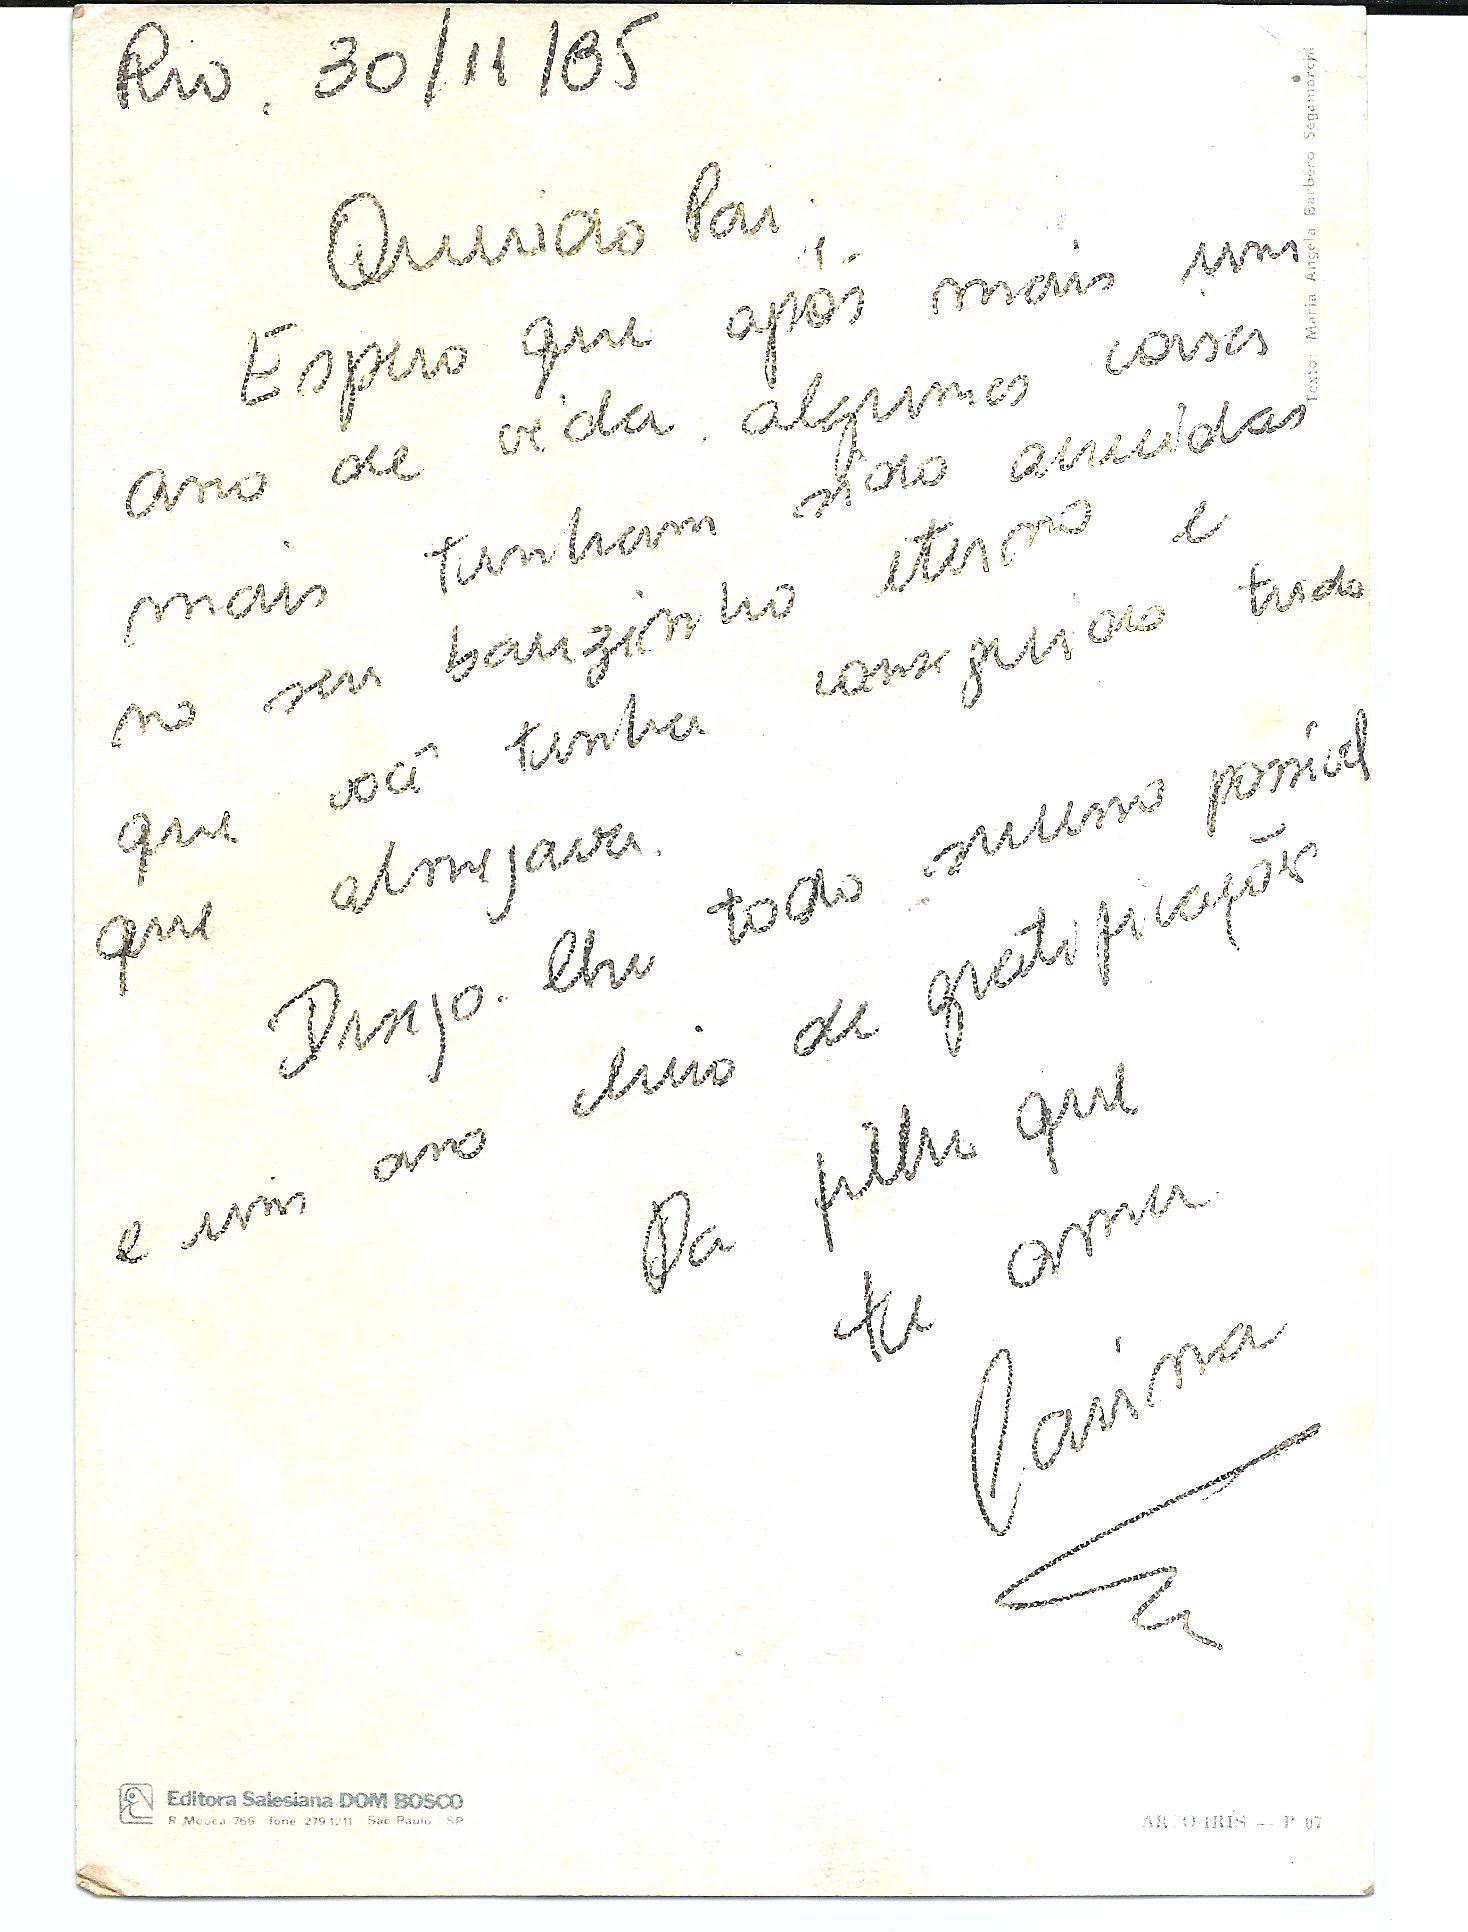 Rio, 30/11/85
Querido Pai,
Espero que após mais um
ano de vida, algumas coisas
mais tenham sido aucidas
no seu bauzinho eterno e
que você tenha conseguido tudo
que almejava.
Desejo-lhe todo sucesso possível
e um ano cheio de gratificações
Da filha que
te ama
Carina
Texto: Maria Angela Barbero Segamarchi
Editora Salesiana DOM BOSCO
R. Mooca, 766 fone 279.1211 Sao Paulo SP
ARCO-IRÍS — P 07